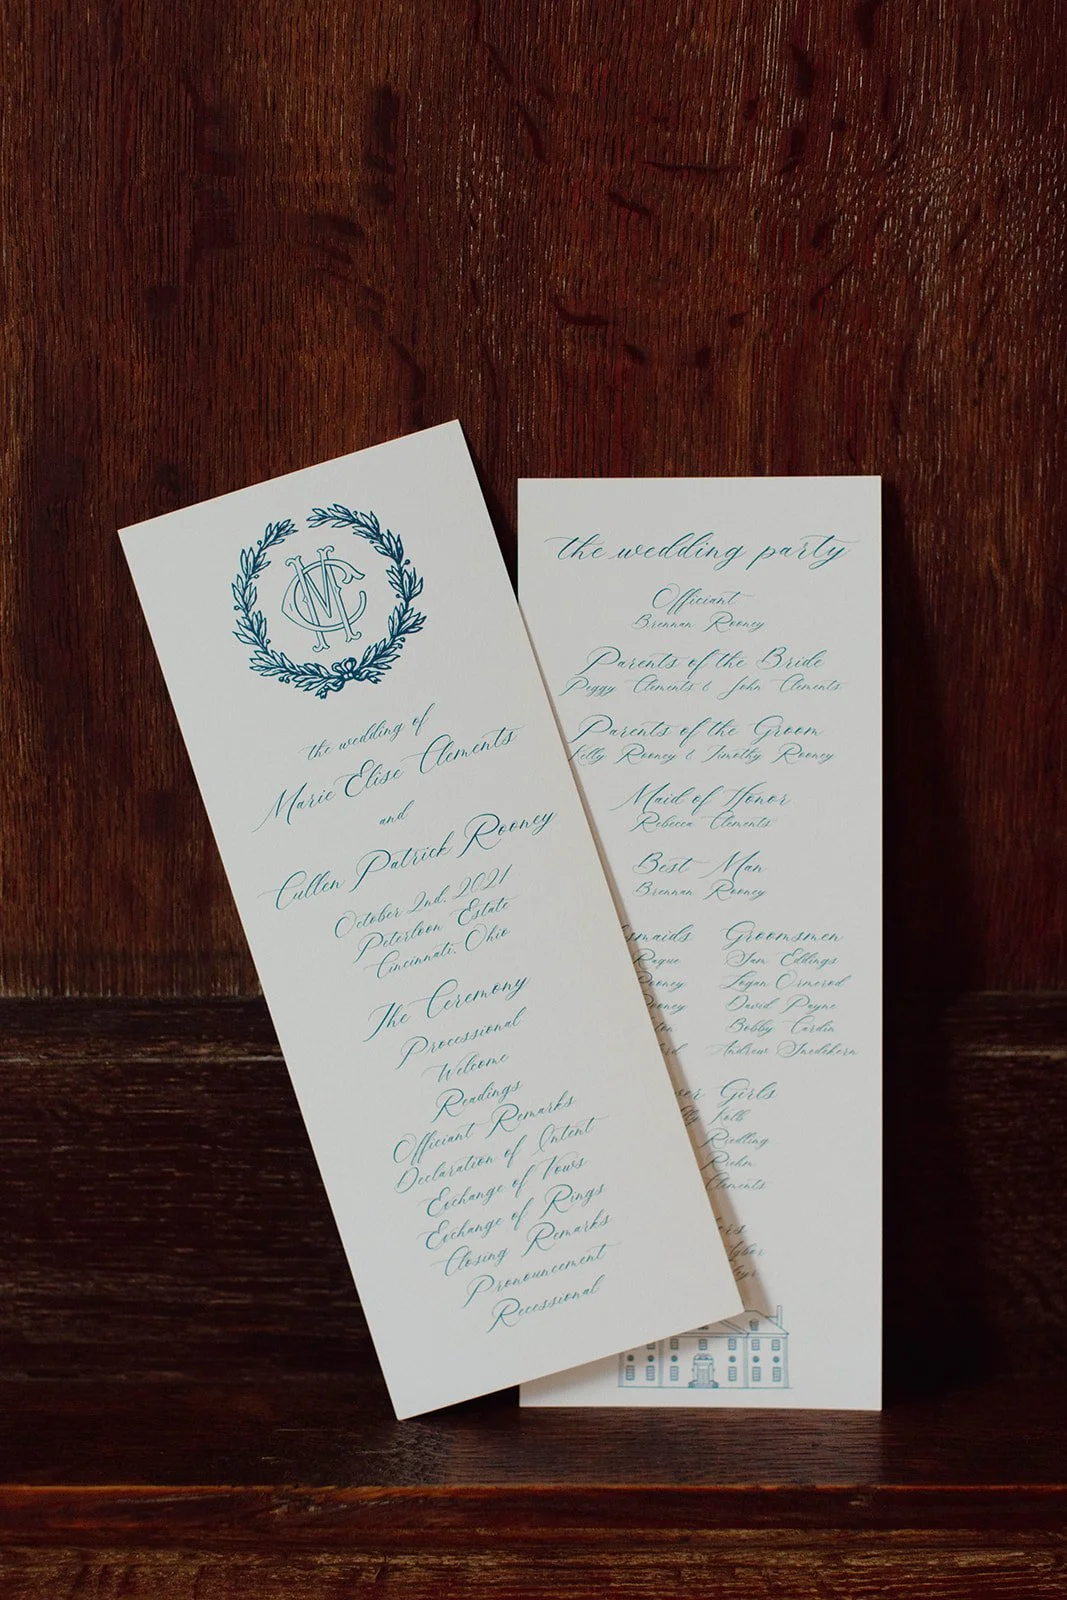 MC
the wedding of
Marie Elise Clements
and
Cullen Patrick Rooney
October 2nd, 2021
Peterloon Estate
Cincinnati, Ohio
The Ceremony
Processional
Welcome
Readings
Officiant Remarks
Declaration of Intent
Exchange of Vows
Exchange of Rings
Closing Remarks
Pronouncement
Recessional
the wedding party
Officiant
Brennan Rooney
Parents of the Bride
Peggy Clements & John Clements
Parents of the Groom
Kelly Rooney & Timothy Rooney
Maid of Honor
Rebecca Clements
Best Man
Brennan Rooney
Groomsmen
Sam Eddings
Rooney Logan Ormerod
David Payne
Bobby Cardin
Andrew
Girls
Kolb
Riedling
Riehm
Clements